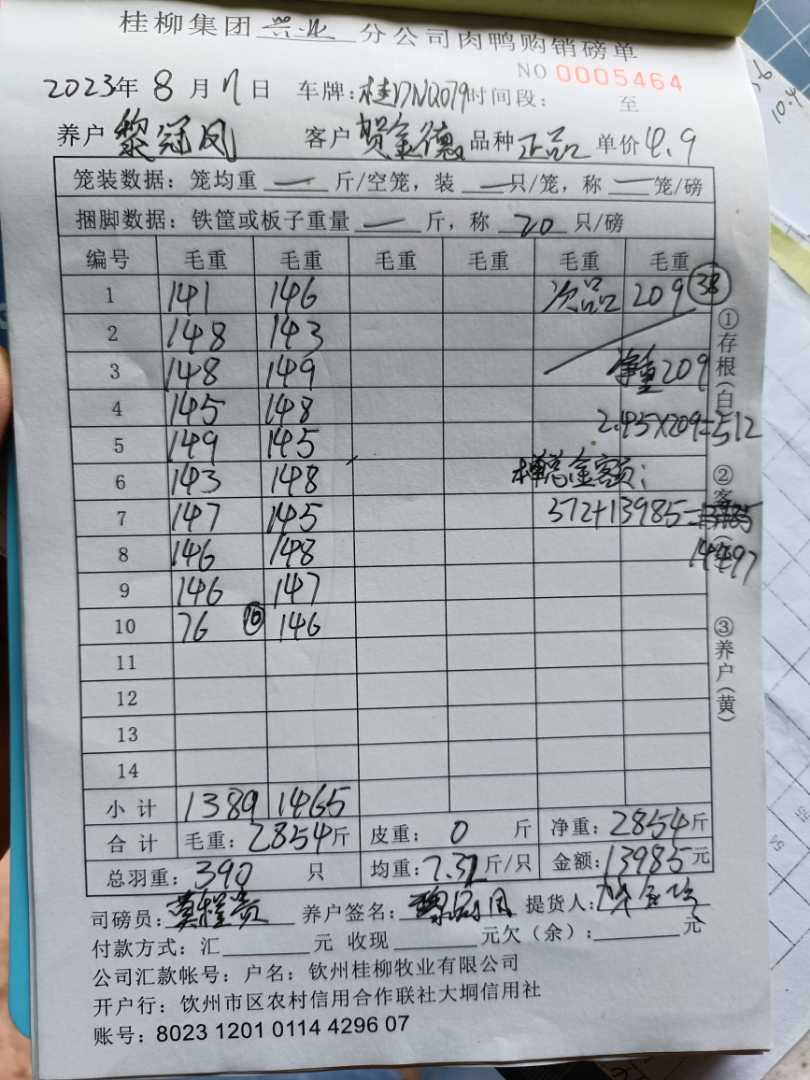 桂柳集团 兴业 分公司肉鸭购销磅单
NO 0005464
2023年 8 月 17 日 车牌:桂DNQ079 时间段: 至
养户 黎冠凤 客户 贺金德 品种 正品 单价 4.9
笼装数据:笼均重 — 斤/空笼,装 — 只/笼,称 — 笼/磅
捆脚数据:铁筐或板子重量 — 斤,称 20 只/磅
编号 毛重 毛重 毛重 毛重 毛重 毛重
1 141 146 次品 209 38
2 148 143
3 148 149 净重209
4 145 148 2.45×209=512
5 149 145
6 143 148 总金额:
7 147 145 512+13985=
8 146 148 14497
9 146 147
10 76 10 146
11
12
13
14
小计 1389 1465
合计 毛重:2854斤 皮重: 0 斤 净重:2854斤
总羽重:390 只 均重:7.32斤/只 金额:13985元
司磅员: 养户签名: 提货人:
付款方式:汇 元 收现 元欠(余): 元
公司汇款帐号:户名:钦州桂柳牧业有限公司
开户行:钦州市区农村信用合作联社大垌信用社
账号:8023 1201 0114 4296 07
①存根(白)
②客
③养户(黄)